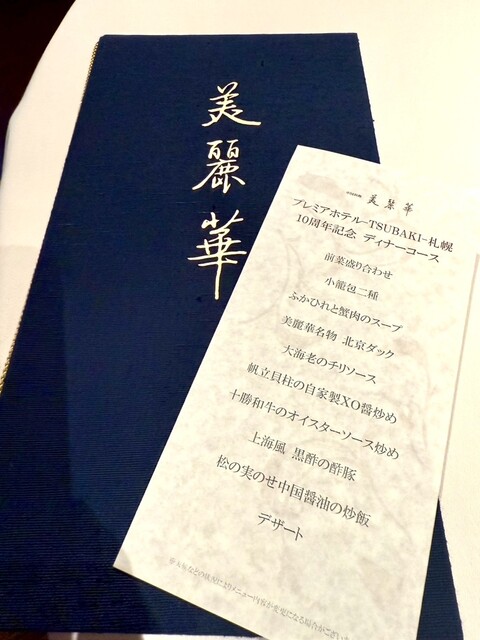 美
麗
華
美麗華
プレミアホテル-TSUBAKI-札幌
10周年記念 ディナーコース
前菜盛り合わせ
小龍包二種
ふかひれと蟹肉のスープ
美麗華名物 北京ダック
大海老のチリソース
帆立貝柱の自家製XO醤炒め
十勝和牛のオイスターソース炒め
上海風 黒酢の酢豚
松の実のせ中国醤油の炒飯
デザート
の状況によりメニュー内容が変更になる場合がござい